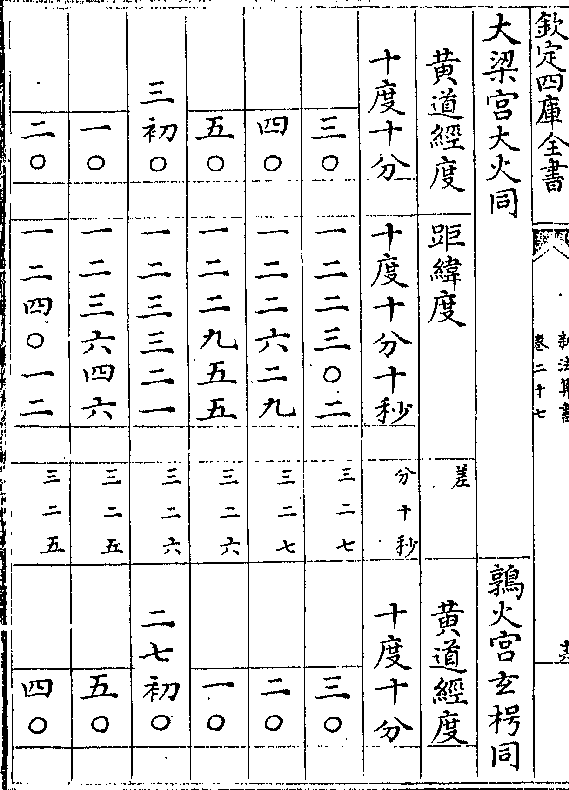 欽定四庫全書
新法算書
卷二十七
大梁宮大火同 鶉火宮玄枵同
黄道經度 距緯度 差 黄道經度
十度十分 十度十分十秒 分十秒 十度十分
三〇 一二二三〇二 三二七 三〇
四〇 一二二六二九 三二七 二〇
五〇 一二二九五五 三二六 一〇
三初〇 一二三三二一 三二六 二七初〇
一〇 一二三六四六 三二五 五〇
二〇 一二四〇一二 三二五 四〇